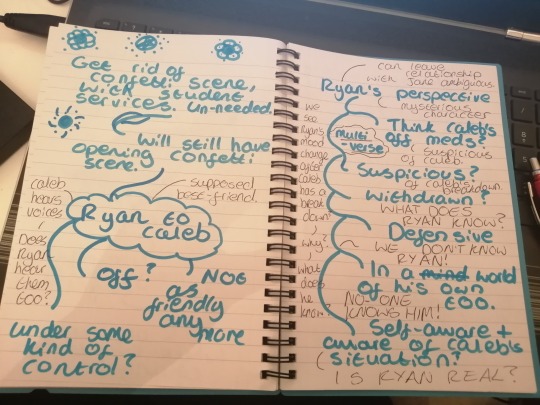 Get rid of
confetti scene,
with student
services. Un-needed.
Will still have
opening confetti
scene.
supposed
best-friend.
Ryan to
Caleb
caleb
hears
voices
Does
Ryan
hear
them
too?
Off?
Not
as
friendly
anymore
under some
kind of
control?
can leave
relationship
with Jane ambiguous.
Ryan's perspective
mysterious
character
multi
-verse
Think caleb's
off meds?
suspicious
of caleb.
Suspicious?
of caleb's
breakdown.
Withdrawn?
WHAT DOES
RYAN KNOW?
Defensive
WE DON'T KNOW
RYAN!
In a mind world
of his own
too.
NO-ONE
KNOWS HIM!
Self-aware +
aware of caleb's
situation?
IS RYAN REAL?
we
see
Ryan's
mood
change
after
caleb
has a
break
down
why?
what
does
he
know?